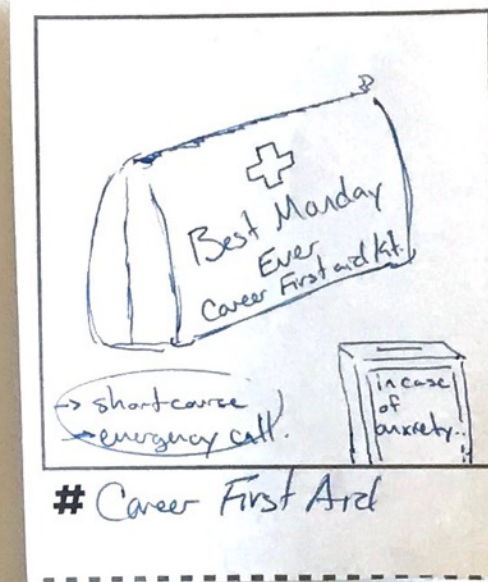 Best Monday
Ever
Career First aid kit.
→ short course
→ emergency call.
in case
of
anxiety...
# Career First Aid